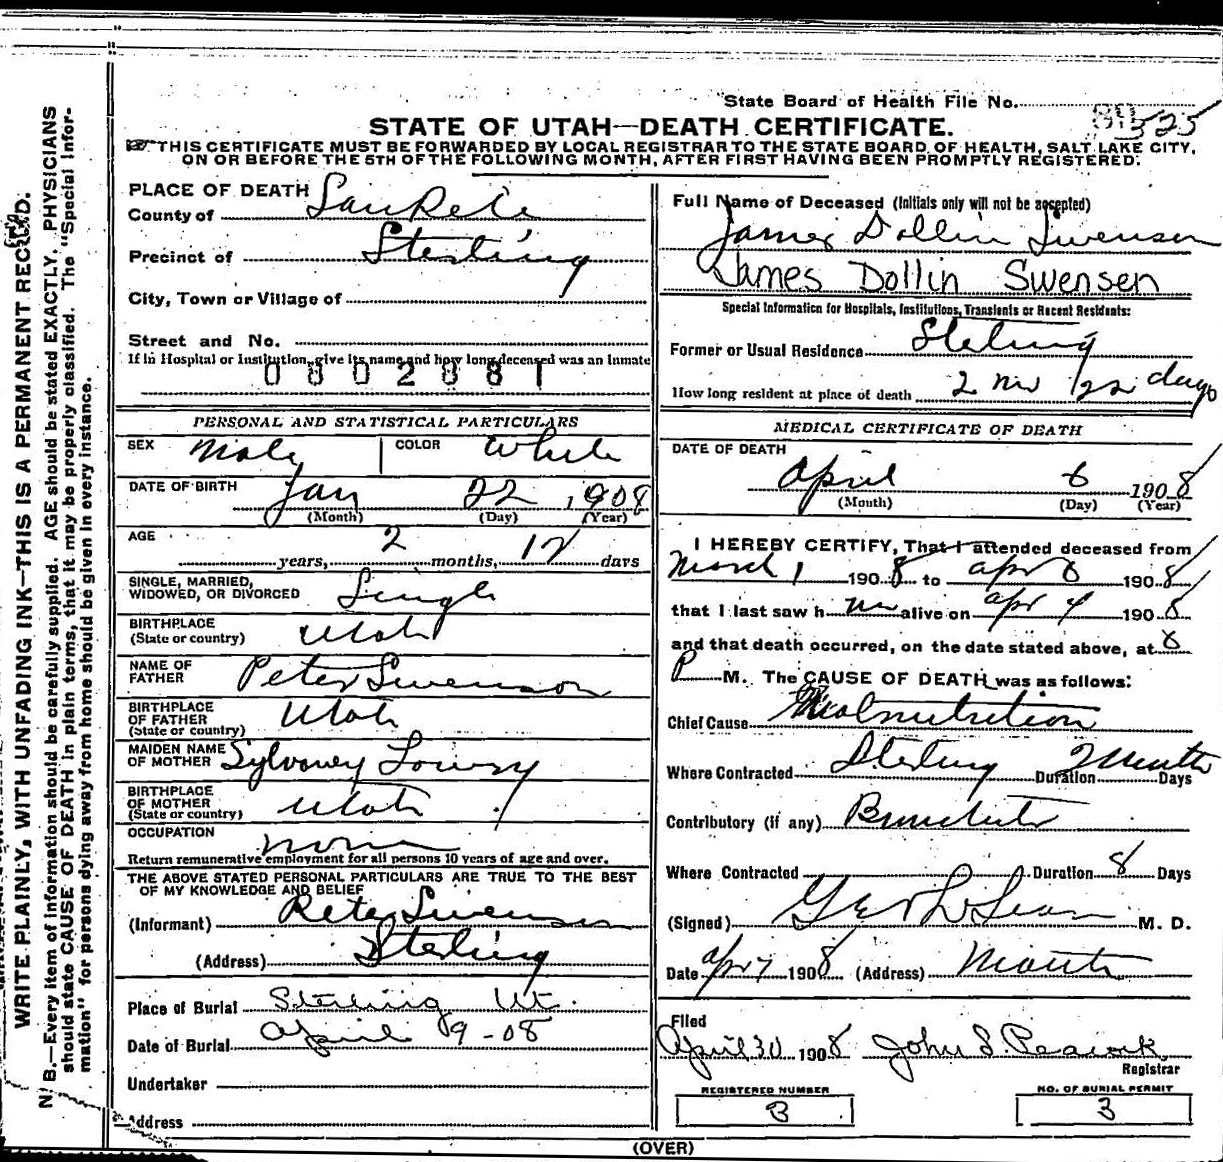 State Board of Health File No. 525
STATE OF UTAH—DEATH CERTIFICATE.
THIS CERTIFICATE MUST BE FORWARDED BY LOCAL REGISTRAR TO THE STATE BOARD OF HEALTH, SALT LAKE CITY,
ON OR BEFORE THE 5TH OF THE FOLLOWING MONTH, AFTER FIRST HAVING BEEN PROMPTLY REGISTERED.
WRITE PLAINLY, WITH UNFADING INK—THIS IS A PERMANENT RECORD.
N. B.—Every item of information should be carefully supplied. AGE should be stated EXACTLY. PHYSICIANS
should state CAUSE OF DEATH in plain terms, that it may be properly classified. The "Special Infor-
mation" for persons dying away from home should be given in every instance.
PLACE OF DEATH
County of SanPete
Precinct of Sterling
City, Town or Village of
Street and No.
If in Hospital or Institution, give its name and how long deceased was an inmate
PERSONAL AND STATISTICAL PARTICULARS
SEX Male COLOR White
DATE OF BIRTH Jan 22, 1908
(Month) (Day) (Year)
AGE
years, 2 months, 12 days
SINGLE, MARRIED,
WIDOWED, OR DIVORCED Single
BIRTHPLACE
(State or country) Utah
NAME OF
FATHER Peter Swenson
BIRTHPLACE
OF FATHER
(State or country) Utah
MAIDEN NAME
OF MOTHER Sylvaney Lowry
BIRTHPLACE
OF MOTHER
(State or country) Utah
OCCUPATION none
Return remunerative employment for all persons 10 years of age and over.
THE ABOVE STATED PERSONAL PARTICULARS ARE TRUE TO THE BEST
OF MY KNOWLEDGE AND BELIEF
(Informant) Peter Swenson
(Address) Sterling
Place of Burial Sterling Ut.
Date of Burial April 9-08
Undertaker
Address
Full Name of Deceased (Initials only will not be accepted)
James Dollin Swensen
James Dollin Swensen
Special Information for Hospitals, Institutions, Transients or Recent Residents:
Former or Usual Residence Sterling
How long resident at place of death 2 mo 22 days
MEDICAL CERTIFICATE OF DEATH
DATE OF DEATH
April 6 1908
(Month) (Day) (Year)
I HEREBY CERTIFY, That I attended deceased from
March 1 1908 to apr 6 1908
that I last saw h im alive on apr 4 1908
and that death occurred, on the date stated above, at 8
P M. The CAUSE OF DEATH was as follows:
Chief Cause Malnutrition
Where Contracted Sterling Duration 2 Months Days
Contributory (if any) Bronchitis
Where Contracted Duration 8 Days
(Signed) M. D.
Date apr 7 1908 (Address) Manti
Filed
April 30 1908 John S. Peacock
Registrar
REGISTERED NUMBER
3
NO. OF BURIAL PERMIT
3
(OVER)